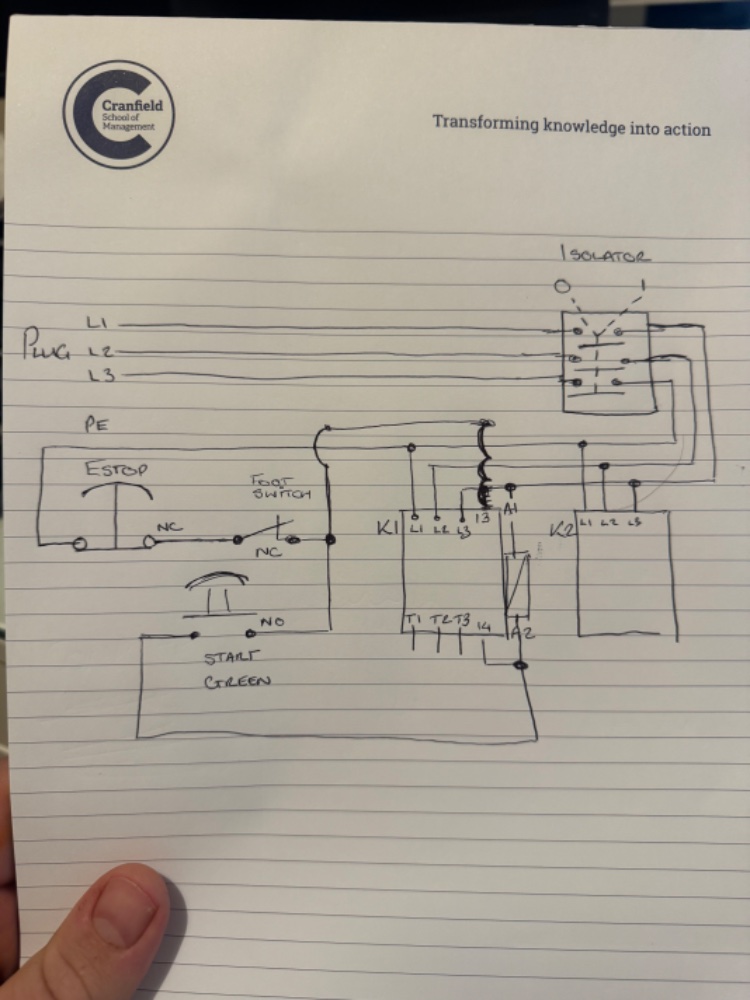 Cranfield
School of
Management
Transforming knowledge into action
ISOLATOR
O I
L1
PLUG L2
L3
PE
ESTOP
FOOT
SWITCH
NC
NC
K1 L1 L2 L3 13 A1
K2 L1 L2 L3
T1 T2 T3 14 A2
NO
START
GREEN